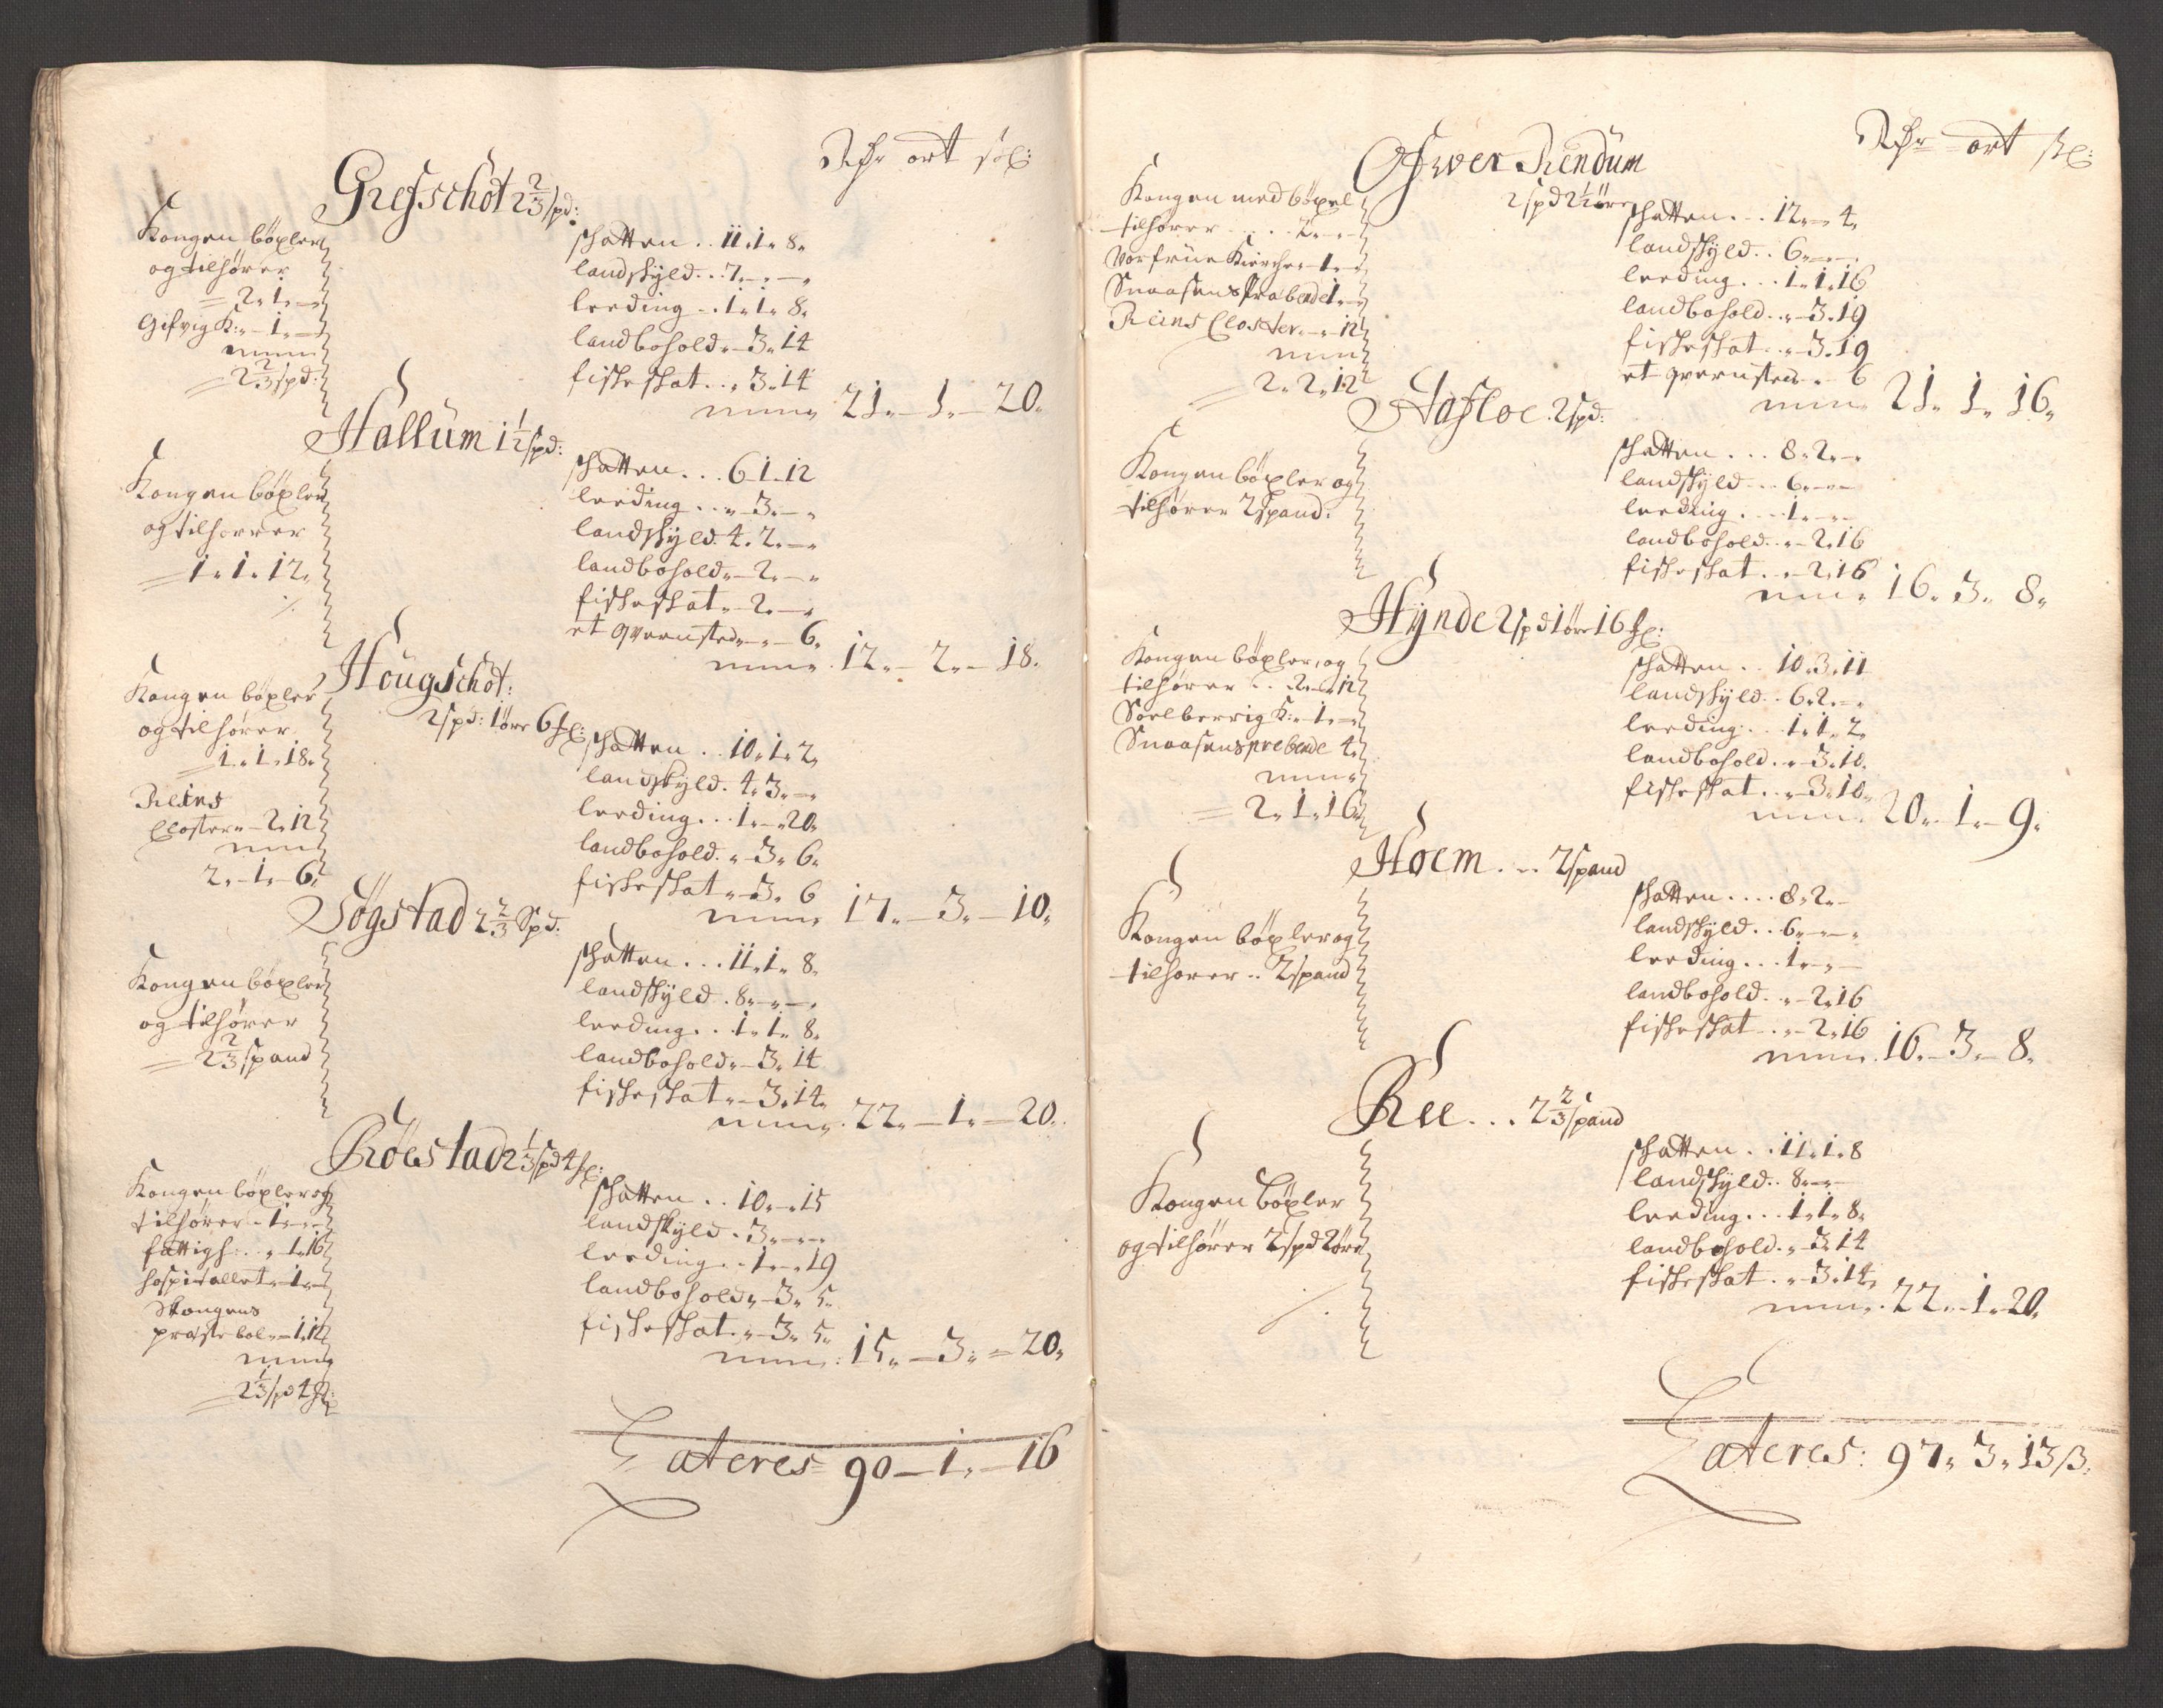 Rdr ort sk:
Grefschot 2 2/3 spd:
Kongen böxler
og tilhörer
= 2„ 1„ —
Gifvig K: „ 1„ —
= 2 2/3 spd:
schatten . . 11„ 1„ 8„
landskyld . . 7„ — „ —
leeding . . 1„ 1„ 8„
landbohold „ — 3„ 14
fiskeskat . . „ 3„ 14
21„ — 1„ — 20„
Hallüm 1 1/2 spd:
Kongen böxler
og tilhörer
= 1„ 1„ 12„
schatten . . . 6 1 12
leeding . . „ 3„ — „
landskyld 4„ 2„ — „
landbohold „ — 2„ — „
fiskeskat „ — 2„ — „
et qvernsted „ — „ 6„
12„ — 2„ — 18„
Hougschot:
2 spd: 1 öre 6 sk:
Kongen böxler
og tilhörer
1„ 1„ 18„
Reins
Closter „ — 2„ 12
2„ 1„ 6„
schatten . . 10„ 1„ 2„
landskyld . 4„ 3„ — „
leeding . . . 1„ — „ 20„
landbohold . „ 3„ 6„
fiskeskat „ — 3„ 6
17„ — 3„ — 10„
Søgstad 2 2/3 Spd:
Kongen böxler
og tilhörer
= 2 2/3 spand
schatten . . . 11„ 1„ 8„
landskyld . 8„ — „ — „
leeding . . 1„ 1„ 8„
landbohold „ — 3„ 14
fiskeskat „ — 3„ 14„
22„ — 1„ — 20„
Röestad 2 1/3 spd 4 sk:
Kongen böxler og
tilhörer „ 1„ — „
fattigh: . . „ 1„ 16
hospitallet „ 1„ —
Stangens
præstebol „ — 1„ 12
= 2 1/3 spd 4 sk:
schatten . . 10„ — „ 15
landskyld . 3„ — „ —
leeding . . 1„ — „ 19
landbohold „ — 3„ 5„
fiskeskat „ „ — 3„ 5„
15„ — 3„ = 20„
Lateres 90 — 1„ — 16
Rdr ort sk:
Ofwer Rendüm
2 spd 2 1/2 öre
Kongen med böxel
tilhörer . . . . 2„ — „
Vorfrüe Kircke „ 1„ — „
Snaasens Præbende 1„ — „
Reins Closter „ — „ 12
= 2„ 2„ 12
schatten . . . 12„ — 4„
landskyld . . 6„ — „ —
leeding . . . 1„ 1„ 16
landbohold . . „ — 3„ 19
fiskeskat . . „ — 3„ 19
et qvernsted „ „ 6
21„ 1„ 16„
Hafloe 2 spd:
Kongen böxler og
tilhörer 2 spand:
schatten . . . 8„ 2„ — „
landskyld . . . 6„ — „ —
leeding . . . . 1„ — „ —
landbohold . . „ — 2„ 16
fiskeskat . . „ — 2„ 16
16„ 3„ 8„
Hÿnde 2 spd 1 öre 16 sk:
Kongen böxler, og
tilhörer . . 2„ — „ 12
Soelberrig K: „ 1„ — „
Snaasens prebende 4„
= 2„ 1„ 16„
schatten . . 10„ 3„ 11
landskyld . . 6„ 2„ — „
leeding . . . 1„ 1„ 2„
landbohold . „ — 3„ 10„
fiskeskat . . „ — 3„ 10„
20„ — 1„ — 9„
Hoem . . . 2 spand
Kongen böxler og
tilhörer . . 2 spand
schatten . . . . 8„ 2„ —
landskyld . . 6„ — „ — „
leeding . . . 1„ — „ —
landbohold . . „ — 2„ 16
fiskeskat . . „ — 2„ 16
16„ — 3„ — 8„
Ree . . . 2 2/3 spand
Kongen böxler
og tilhörer 2 spd 2 öre
schatten . . 11„ 1„ 8
landskyld . . 8„ — „ —
leeding . . . 1„ 1„ 8„
landbohold . „ — 3„ 14
fiskeskat . „ — 3„ 14„
22„ — 1„ 20„
Lateres: 97„ 3„ 13 ß„